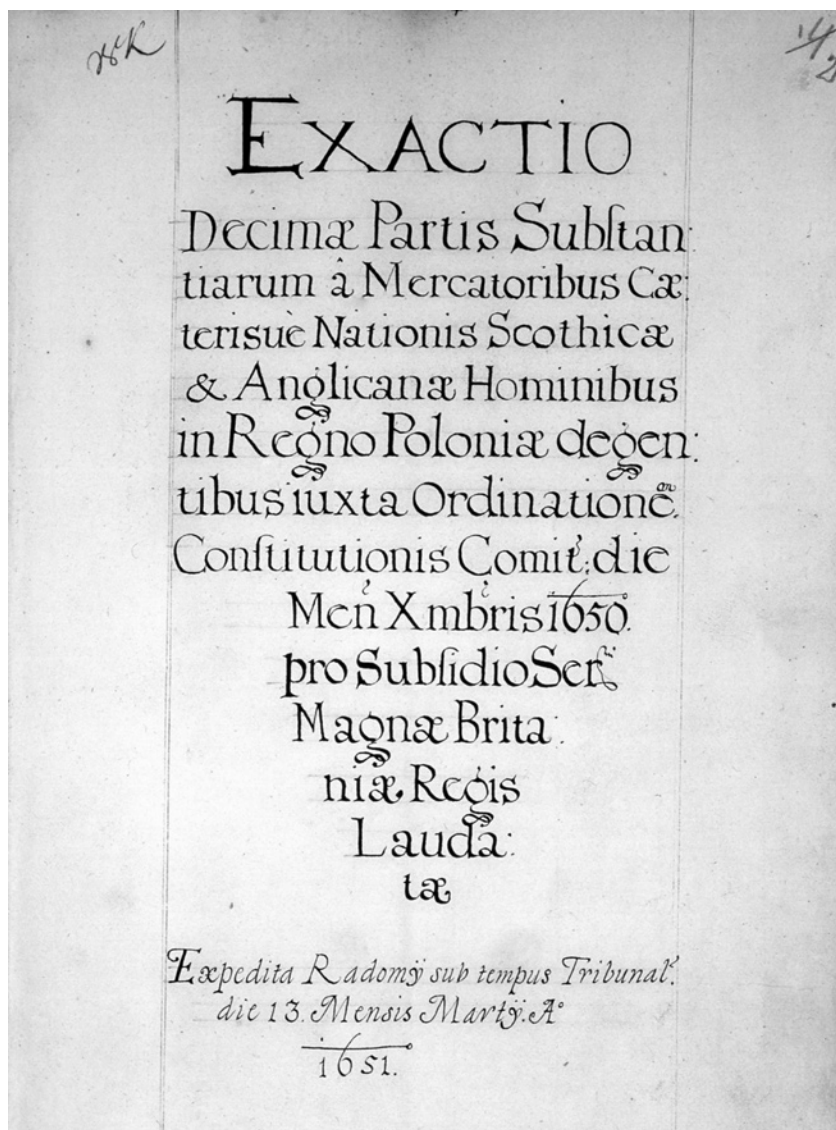 EXACTIO
Decimæ Partis Subſtan:
tiarum â Mercatoribus Cæ:
terisuè Nationis Scothicæ
& Anglicanæ Hominibus
in Regno Poloniæ degen:
tibus iuxta Ordinationē
Conſtitutionis Comit: die
Men Xmbris 1650.
pro Subſidio Ser
Magnæ Brita:
niæ Regis
Lauda:
tæ
Expedita Radomÿ sub tempus Tribunal.
die 13. Mensis Martÿ. A°
1651.